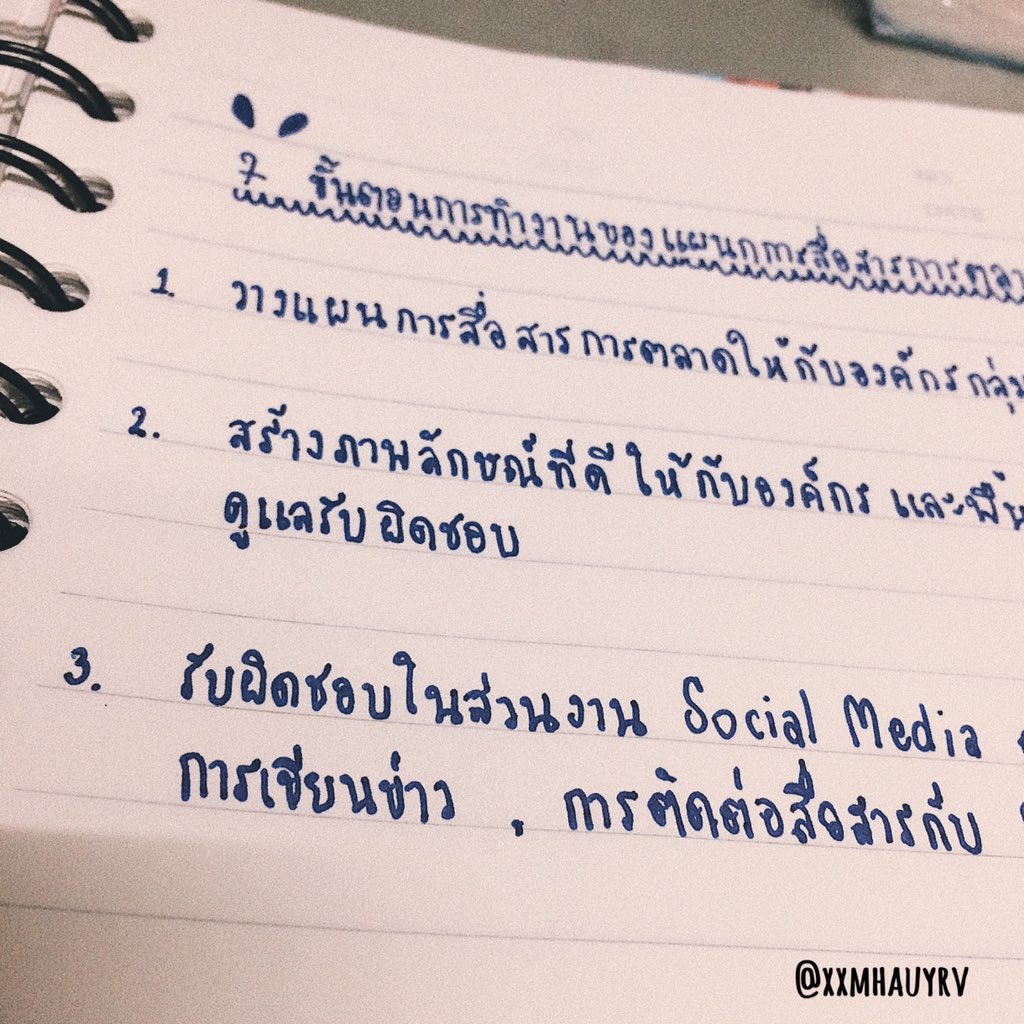 7 ขั้นตอนการทำงานของแผนกการสื่อสารการตลา
1. วางแผนการสื่อสารการตลาดให้กับองค์กร กลุ่ม
2. สร้างภาพลักษณ์ที่ดี ให้กับองค์กร และพื้น
ดูแลรับผิดชอบ
3. รับผิดชอบในส่วนงาน Social Media
การเขียนข่าว , การตัดต่อสื่อสารกับ
@XXMHAUYRV